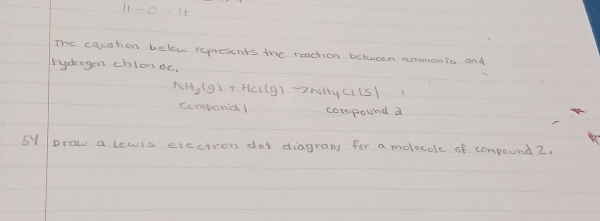 H-O-H
The equation below represents the reaction between ammonia and
hydrogen chloride.
NH3(g) + HCl(g) → NH4Cl(s)
compound 1 compound 2
54 Draw a Lewis electron dot diagram for a molecule of compound 2.